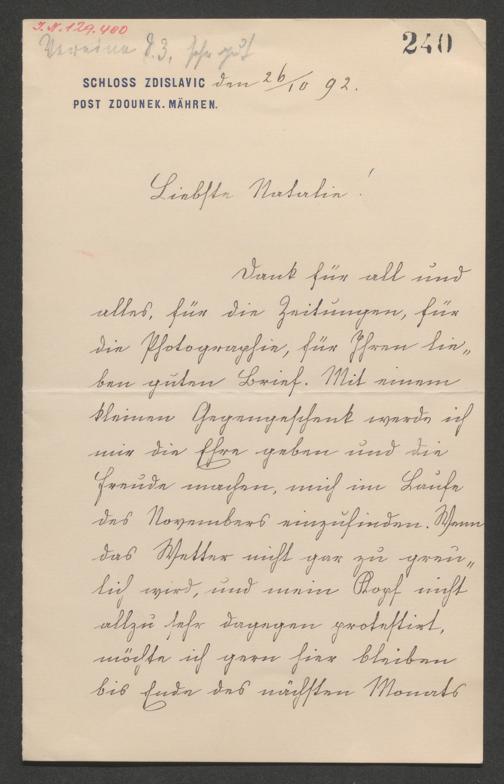 J.N. 129.400
Vereine d. 3, sehr gut
240
SCHLOSS ZDISLAVIC den 26/10 92.
POST ZDOUNEK. MÄHREN.
Liebste Natalie!
Dank für all und
alles, für die Zeitungen, für
die Photographie, für Ihren lie„
ben guten Brief. Mit einem
kleinen Gegengeschenk werde ich
mir die Ehre geben und die
Freude machen, mich im Laufe
des Novembers einzufinden. Wenn
das Wetter nicht gar zu greu„
lich wird, und mein Kopf nicht
allzu sehr dagegen protestirt,
möchte ich gern hier bleiben
bis Ende des nächsten Monats